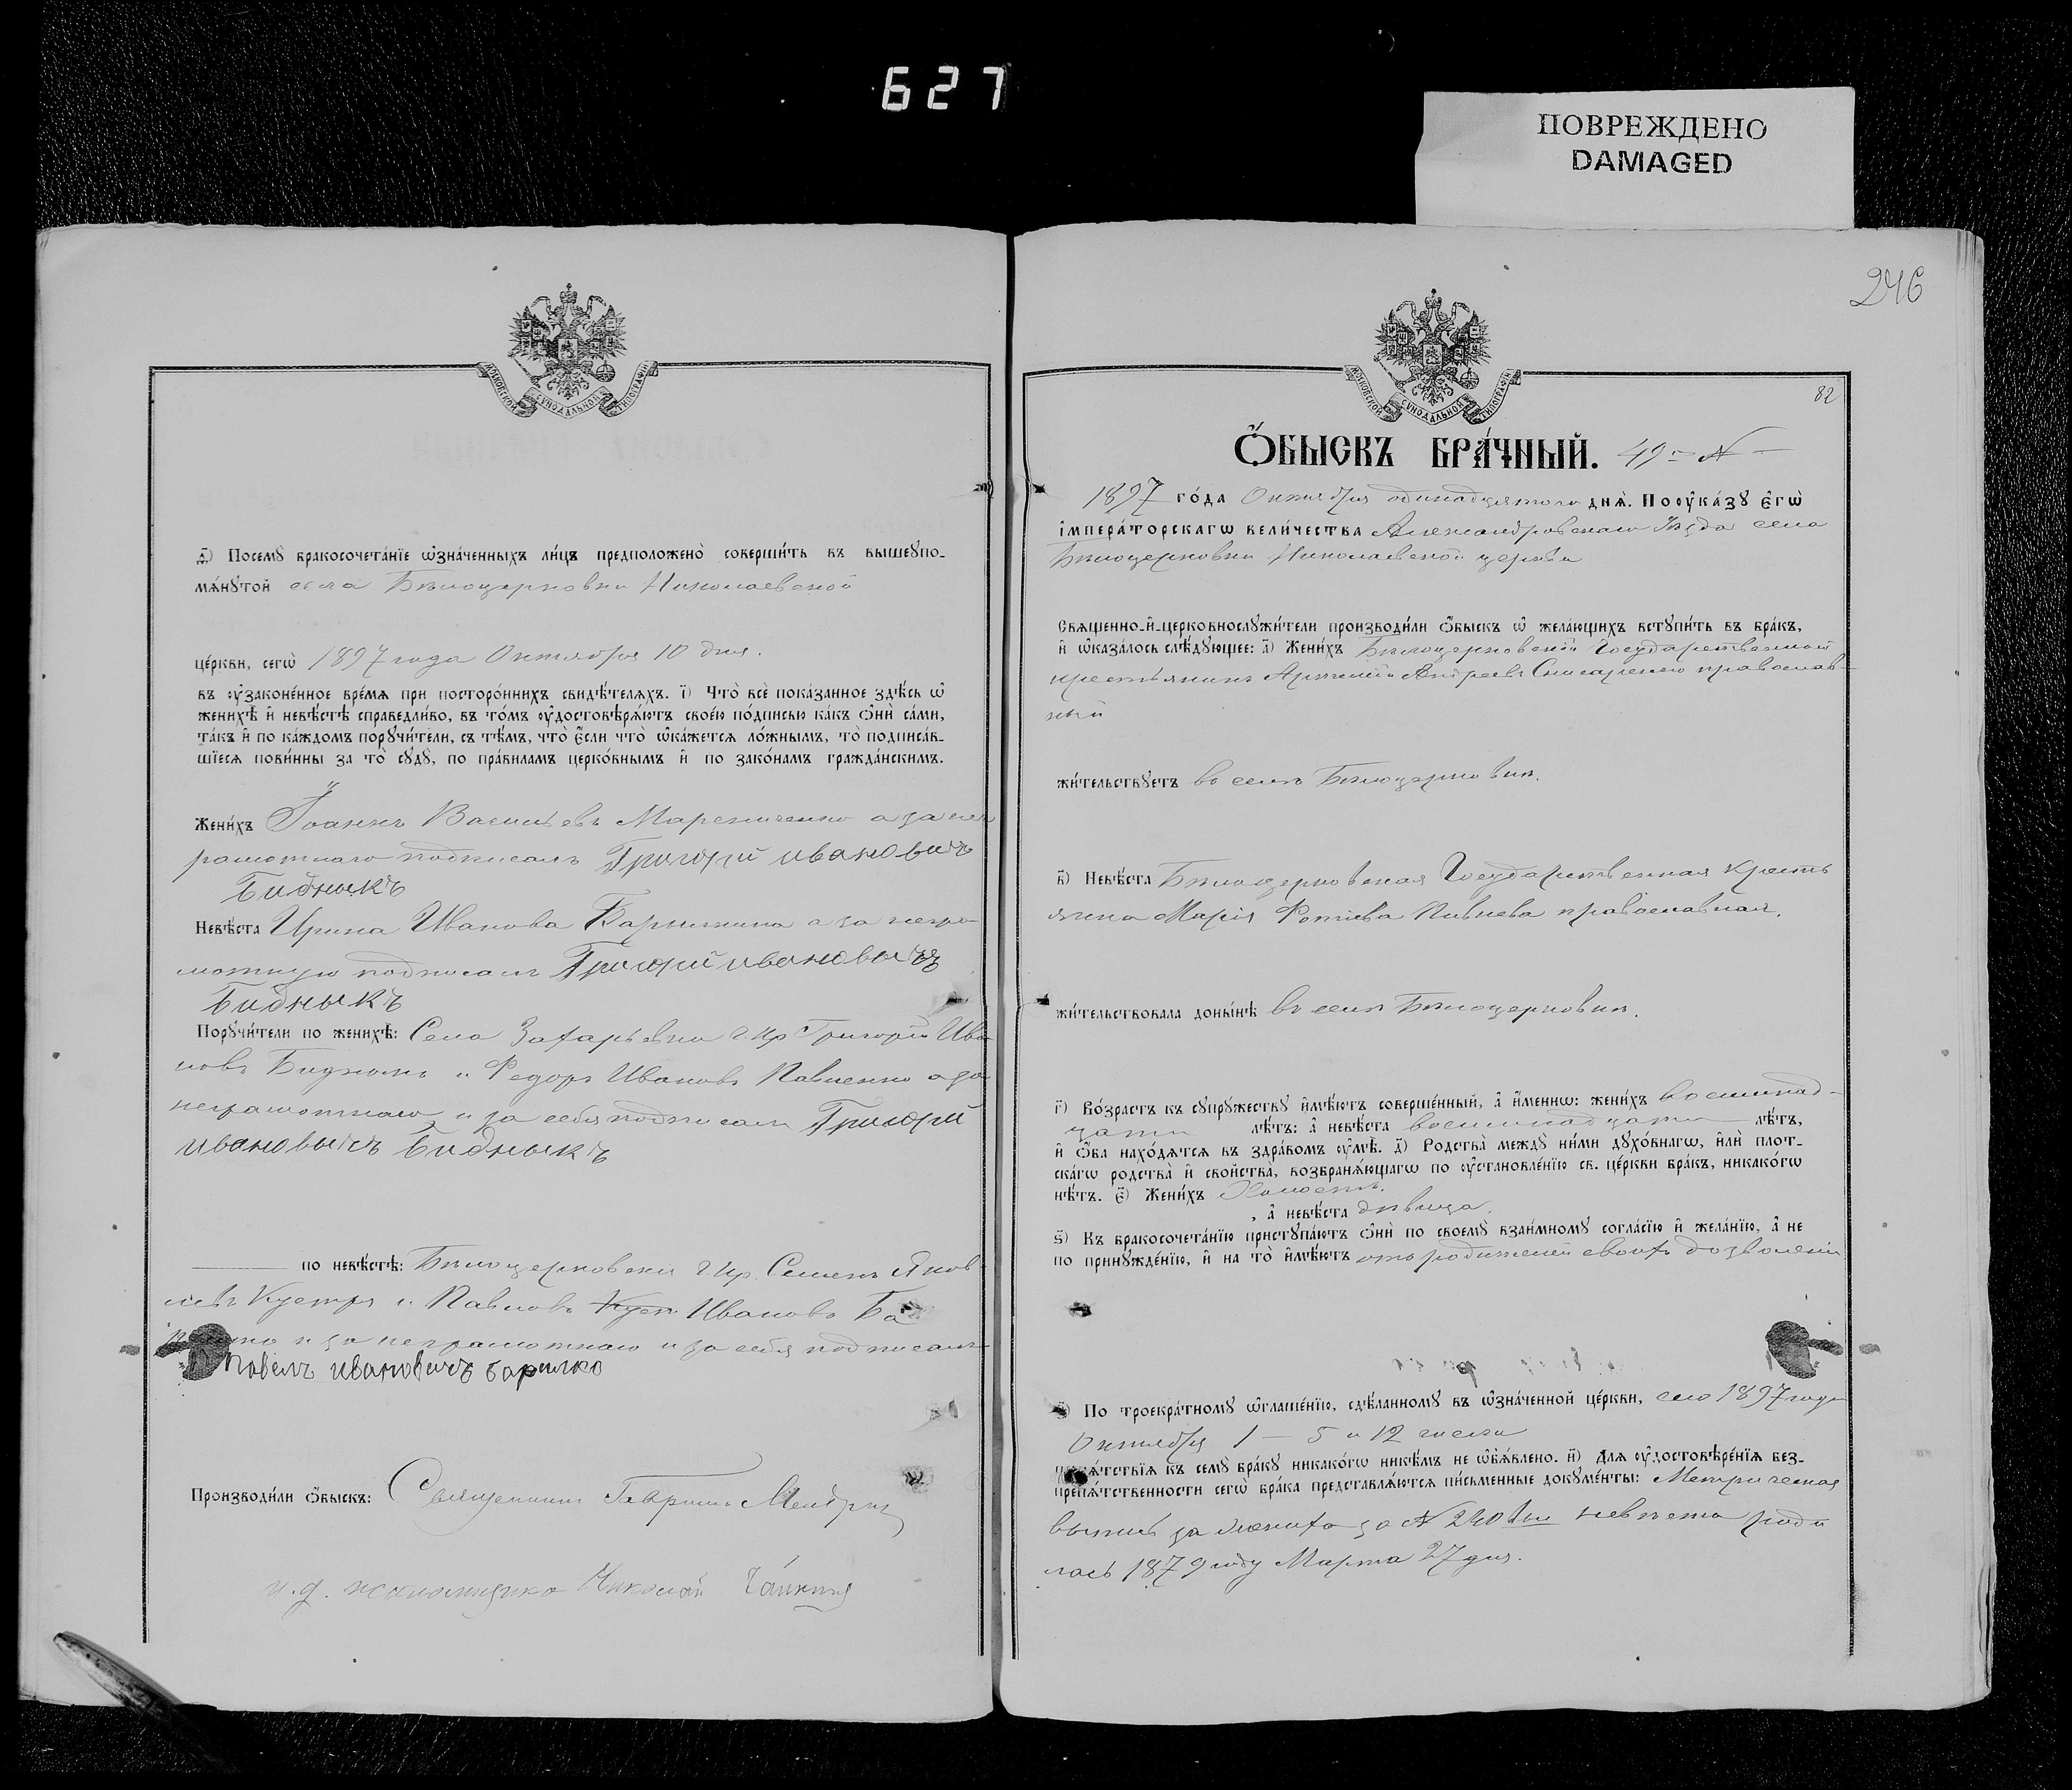 627
ПОВРЕЖДЕНО
DAMAGED
МОСКОВСКОЙ СѴНОДАЛЬНОЙ ТИПОГРАФІИ
д҃) Посемꙋ̀ бракосочета́нїе ѡ҆зна́ченныхъ ли́цъ предположено̀ соверши́ть въ вышеꙋпо-
мѧ́нꙋтой села Бѣлоцерковки Николаевской
це́ркви, сегѡ̀ 1897 года Октября 10 дня.
въ ᲂу҆зако́ненное вре́мѧ при посторо́ннихъ свидѣ́телѧхъ. і҃) Что̀ всѐ пока́занное здѣ́сь ѡ҆
женихѣ̀ и҆ невѣ́стѣ справедли́во, въ то́мъ ᲂу҆достовѣрѧ́ютъ свое́ю по́дписью ка́къ ѻ҆нѝ са́ми,
та́къ и҆ по ка́ждомъ порꙋчи́тели, съ тѣ́мъ, что̀ є҆́сли что̀ ѡ҆ка́жетсѧ ло́жнымъ, то̀ подписа́в-
шїесѧ пови́нны за то̀ сꙋдꙋ̀, по пра́виламъ церко́внымъ и҆ по зако́намъ гражда́нскимъ.
Жени́хъ Іоаннъ Васильевъ а за нег
рамотнаго подписалъ Григорій ивановичъ
Бидныкъ
Невѣ́ста Ирина Иванова Барылкина а за негра-
мотную подписалъ Григорій ивановычъ
Бидныкъ
Порꙋчи́тели по женихѣ̀: Села Захарьевки г. кр Григорій Ива
новъ Бидныкъ и Федоръ Ивановъ Павленко а за
неграмотнаго и за себя подписалъ Григорій
ивановычъ Бидныкъ
по невѣ́стѣ: Бѣлоцерковски г. кр. Семенъ Яков
левъ и Павловъ Ивановъ
и за неграмотнаго и за себя подписалъ
Павелъ ивановичъ барилко
Производи́ли ѻ҆́быскъ: Священникъ Гавріилъ
и. д. псаломщика Николай
246
МОСКОВСКОЙ СѴНОДАЛЬНОЙ ТИПОГРАФІИ
82
Ѻ҆́БЫСКЪ БРА́ЧНЫЙ. 49 N
1897 го́да Октября одинадцятого днѧ̀. По ᲂу҆ка́зꙋ є҆гѡ̀
і҆мпера́торскагѡ вели́чества Александровскаго Уѣзда села
Бѣлоцерковки Николаевской церкви
Свѧщенно-и҆-церковнослꙋжи́тели производи́ли ѻ҆́быскъ ѡ҆ жела́ющихъ встꙋпи́ть въ бра́къ,
и҆ ѡ҆каза́лось слѣ́дꙋющее: а҃) Жени́хъ Бѣлоцерковскій Государственный
крестьянинъ Андреевъ православ-
ный
жи́тельствꙋетъ во селѣ Бѣлоцерковки.
в҃) Невѣ́ста Бѣлоцерковская Государственная кресть
янка Марія Фотіева Пивнева православная.
жи́тельствовала доны́нѣ во селѣ Бѣлоцерковки.
г҃) Во́зрастъ къ сꙋпрꙋжествꙋ и҆мѣ́ютъ соверше́нный, а҆ и҆́меннѡ: жени́хъ восимнад-
цати лѣ́тъ: а҆ невѣ́ста восимнадцати лѣ́тъ,
и҆ ѻ҆́ба нахо́дѧтсѧ въ здра́вомъ ᲂу҆мѣ̀. д҃) Родства̀ междꙋ̀ ни́ми дꙋхо́внагѡ, и҆лѝ плот-
ска́гѡ родства̀ и҆ сво́йства, возбранѧ́ющагѡ по ᲂу҆становле́нїю св. це́ркви бра́къ, никако́гѡ
нѣ́тъ. є҃) Жени́хъ Холостъ.
, а҆ невѣ́ста дѣвица.
ѕ҃) Къ бракосочета́нїю пристꙋпа́ютъ ѻ҆нѝ по своемꙋ̀ взаи́мномꙋ согла́сїю и҆ жела́нїю, а҆ не
по принꙋжде́нїю, и҆ на то̀ и҆мѣ́ютъ отъ родителей своихъ дозволеніи
з҃) По троекра́тномꙋ ѡ҆глаше́нїю, сдѣ́ланномꙋ въ ѡ҆зна́ченной це́ркви, сего 1897 года
Октября 1 – 5 и 12 числа
препѧ́тствїѧ къ семꙋ̀ бра́кꙋ никако́гѡ никѣ́мъ не ѡ҆б̾ѧ́влено. и҃) Длѧ ᲂу҆достовѣре́нїѧ без-
препѧ́тственности сегѡ̀ бра́ка представлѧ́ютсѧ пи́сьменные докꙋме́нты: Метрическая
выпись за жениха за N 240 невѣста роди
лась 1879 году Марта 27 дня.